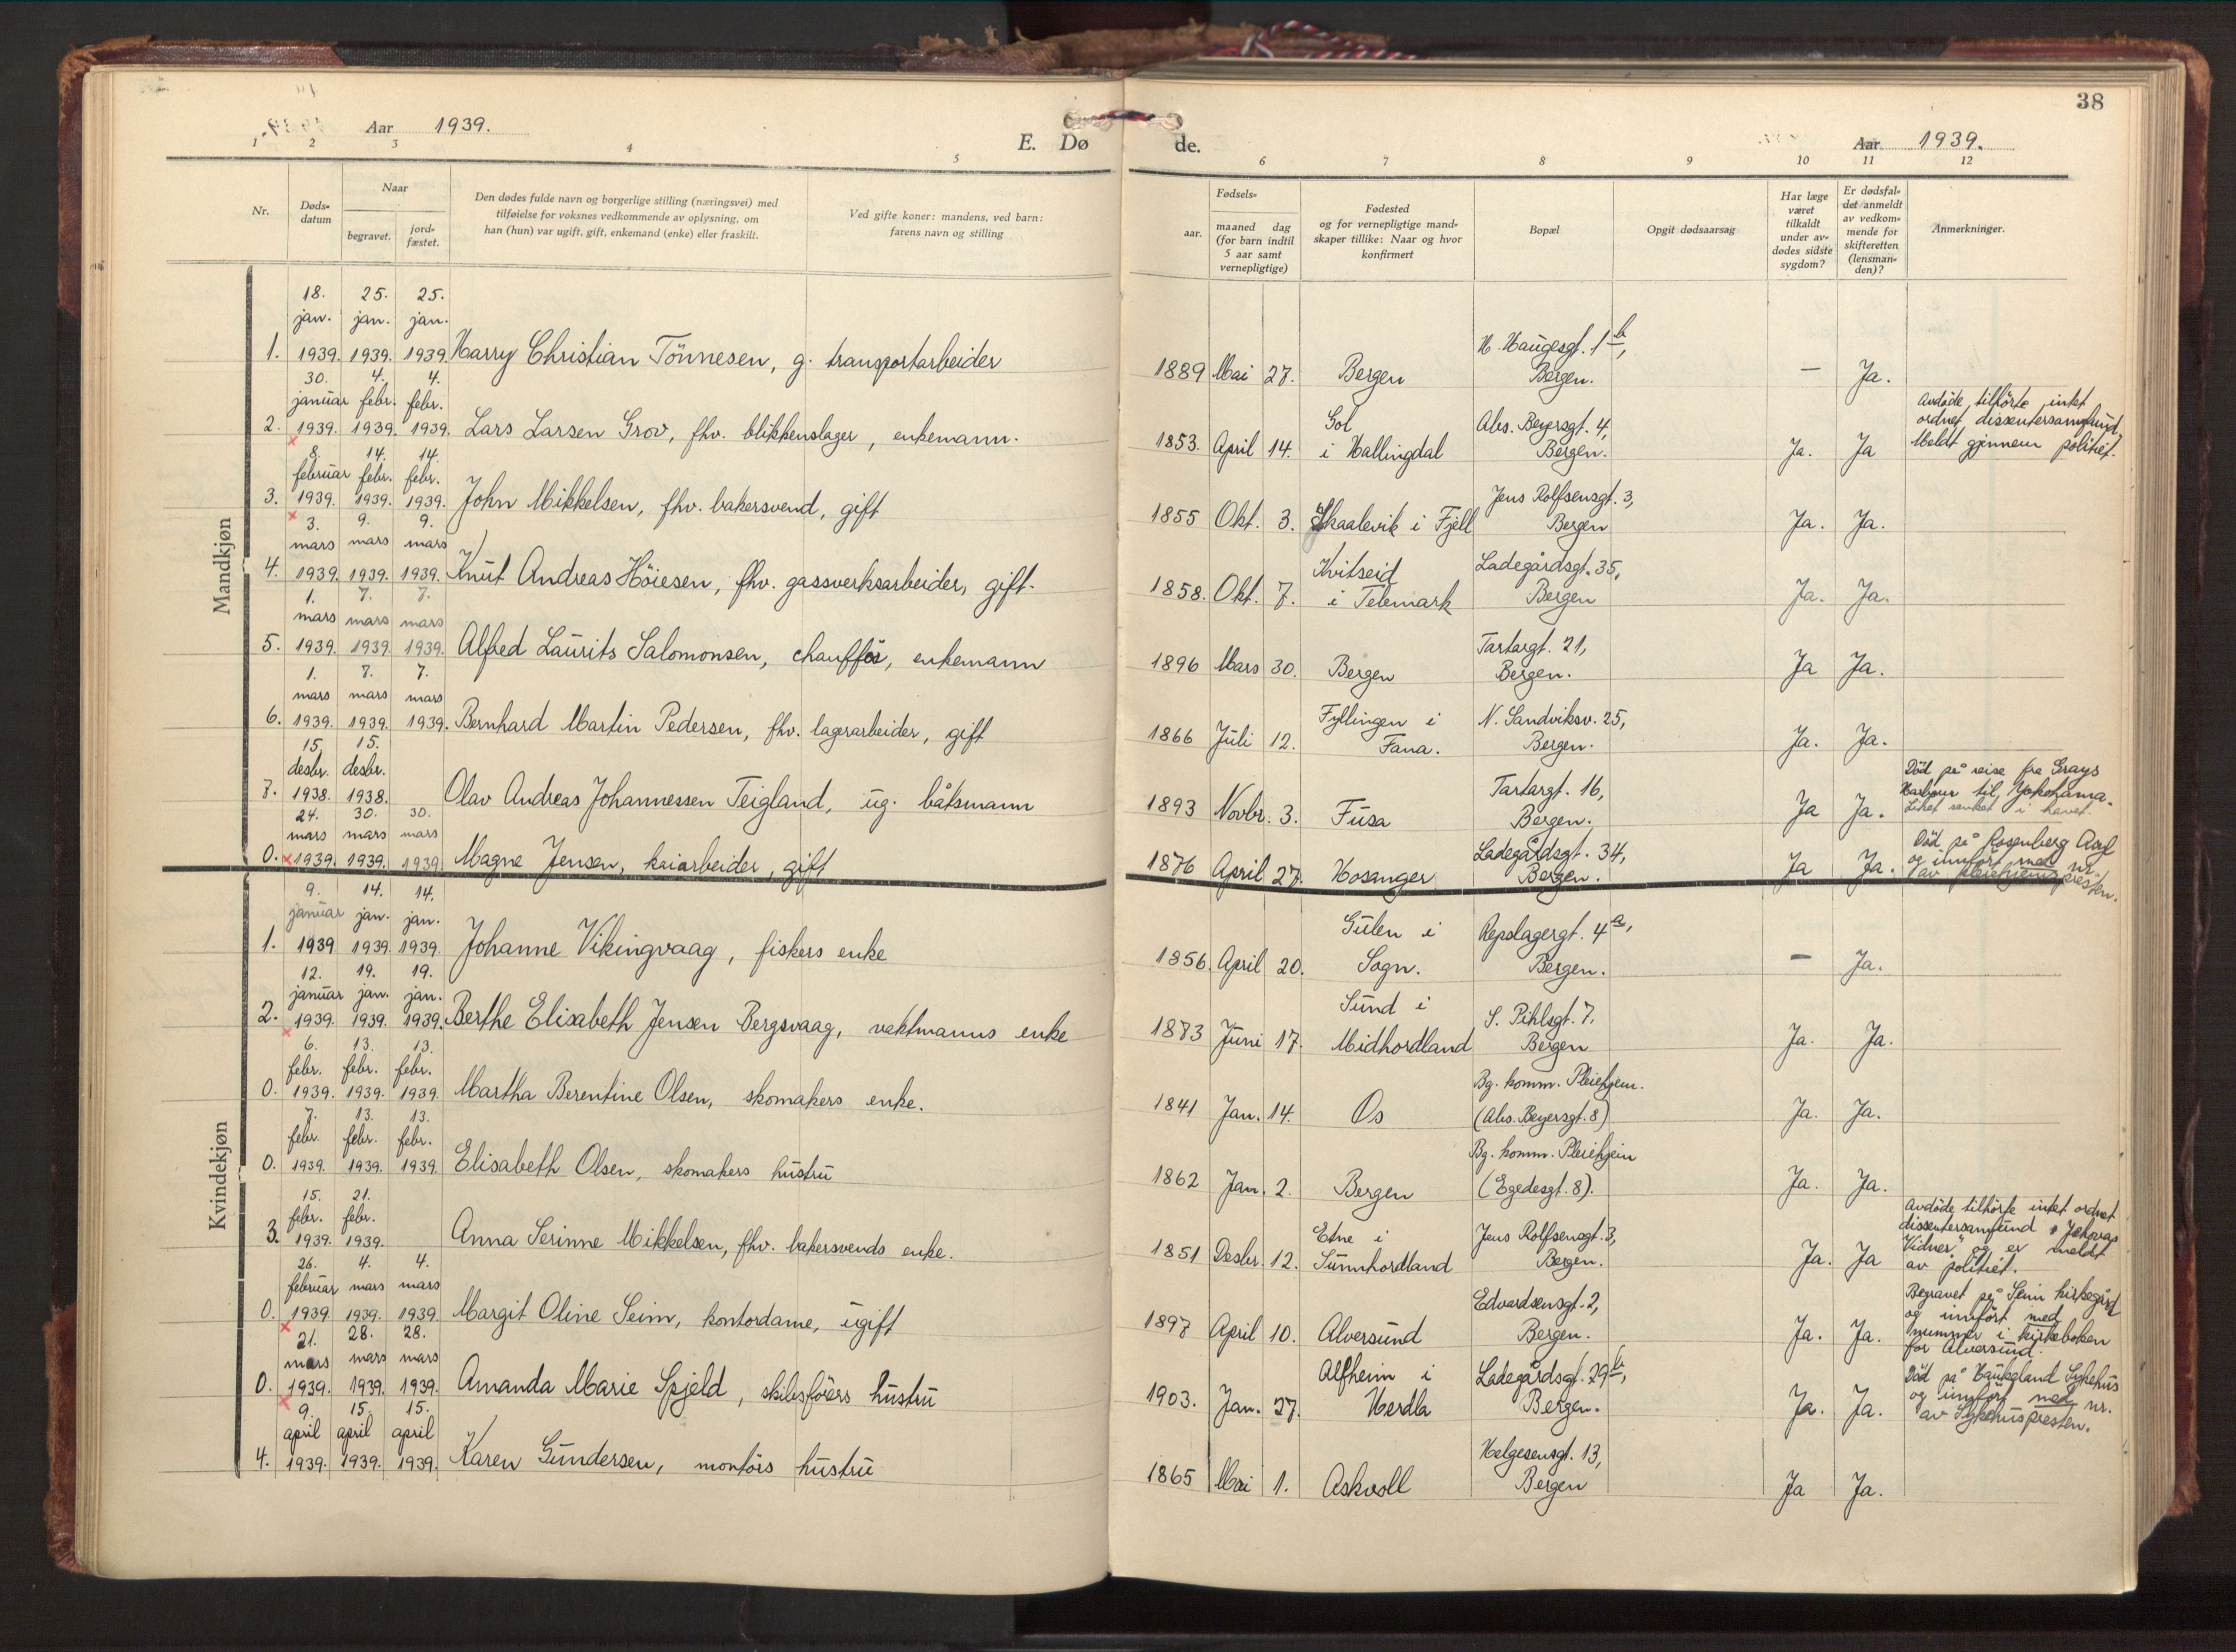 38
Aar 1939.
E. Dø
de.
Aar 1939.
1 2 3 4 5
6 7 8 9 10 11 12
Nr.
Døds-
datum
Naar
begravet.
jord-
fæstet.
Den dødes fulde navn og borgerlige stilling (næringsvei) med
tilføielse for voksnes vedkommende av oplysning, om
han (hun) var ugift, gift, enkemand (enke) eller fraskilt.
Ved gifte koner: mandens, ved barn:
farens navn og stilling
Fødsels-
aar.
maaned dag
(for barn indtil
5 aar samt
vernepligtige)
Fødested
og for vernepligtige mand-
skaper tillike: Naar og hvor
konfirmert
Bopæl
Opgit dødsaarsag
Har læge
været
tilkaldt
under av-
dødes sidste
sygdom?
Er dødsfal-
det anmeldt
av vedkom-
mende for
skifteretten
(lensman-
den)?
Anmerkninger.
Mandkjøn
18. 25. 25.
jan. jan. jan.
1. 1939. 1939. 1939. Harry Christian Tönnesen, g. transportarbeider
H. Haugesgt. 1 b,
1889 Mai 27. Bergen Bergen. — Ja.
30. 4. 4.
januar febr. febr.
2. 1939. 1939. 1939. Lars Larsen Grov, fhv. blikkenslager, enkemann.
Gol Abs. Beyersgt. 4,
1853. April 14. i Hallingdal Bergen. Ja. Ja
Avdöde tilhörte intet
ordnet dissentersamfund.
Meldt gjennem politiet.
8. 14. 14.
februar febr. febr.
3. 1939. 1939. 1939. John Mikkelsen, fhv. bakersvend, gift
Jens Rolfsensgt. 3,
1855 Okt. 3. Skaalevik i Fjell Bergen Ja. Ja.
3. 9. 9.
mars mars mars
4. 1939. 1939. 1939. Knut Andreas Höiesen, fhv. gassverksarbeider, gift.
Kvitseid Ladegårdsgt. 35,
1858. Okt. 7. i Telemark Bergen Ja. Ja.
1. 7. 7.
mars mars mars
5. 1939. 1939. 1939. Alfred Laurits Salomonsen, chauffør, enkemann
Tartargt. 21,
1896 Mars 30. Bergen Bergen. Ja Ja.
1. 7. 7.
mars mars mars
6. 1939. 1939. 1939. Bernhard Martin Pedersen, fhv. lagerarbeider, gift
Fyllingen i N. Sandviksv. 25,
1866 Juli 12. Fana. Bergen. Ja. Ja.
15. 15.
desbr. desbr.
7. 1938. 1938. Olav Andreas Johannessen Teigland, ug. båtsmann
Tartargt. 16,
1893 Novbr. 3. Fusa Bergen. Ja Ja.
Död på reise fra Grays
Harbour til Yokohama.
Liket senket i havet.
24. 30. 30.
mars mars mars
0. 1939. 1939. 1939. Magne Jensen, kaiarbeider, gift
Ladegårdsgt. 34,
1876 April 27. Hosanger Bergen. Ja Ja.
Död på Rosenberg Asyl
og innfört med nr.
av pleiehjemspresten.
Kvindekjøn
9. 14. 14.
januar jan. jan.
1. 1939 1939. 1939. Johanne Vikingvaag, fiskers enke
Gulen i Repslagergt. 4 a,
1856. April 20. Sogn. Bergen. — Ja.
12. 19. 19.
januar jan. jan.
2. 1939. 1939. 1939. Berthe Elisabeth Jensen Bergsvaag, vaktmanns enke
Sund i S. Pihlsgt. 7.
1873 Juni 17. Midhordland Bergen Ja. Ja.
6. 13. 13.
febr. febr. febr.
0. 1939. 1939. 1939. Martha Berentine Olsen, skomakers enke.
Bg. komm. Pleiehjem.
1841 Jan. 14. Os (Abs. Beyersgt. 8) Ja. Ja.
7. 13. 13.
febr. febr. febr.
0. 1939. 1939. 1939. Elisabeth Olsen, skomakers hustru
Bg. komm. Pleiehjem
1862 Jan. 2. Bergen (Egedesgt. 8). Ja. Ja.
15. 21.
febr. febr.
3. 1939. 1939. Anna Serinne Mikkelsen, fhv. bakersvends enke.
Etne i Jens Rolfsensgt. 3,
1851 Desbr. 12. Sunnhordland Bergen. Ja. Ja
Avdöde tilhörte intet ordnet
dissentersamfund "Jehovas
Vidner" og er meldt
av politiet.
26. 4. 4.
februar mars mars
0. 1939. 1939. 1939. Margit Oline Seim, kontordame, ugift
Edvardsensgt. 2,
1897 April 10. Alversund Bergen. Ja. Ja.
Begravet på Seim kirkegård
og innfört med
nummer i kirkeboken
for Alversund.
21. 28. 28.
mars mars mars
0. 1939. 1939. 1939. Amanda Marie Spjeld, skibsförers hustru
Alfheim i Ladegårdsgt. 29 b,
1903. Jan. 27. Herdla Bergen. Ja. Ja.
Död på Haukeland Sykehus
og innfört med nr.
av Sykehuspresten.
9. 15. 15.
april april april
4. 1939. 1939. 1939. Karen Gundersen, montörs hustru
Helgesensgt. 13,
1865 Mai 1. Askvoll Bergen Ja Ja.